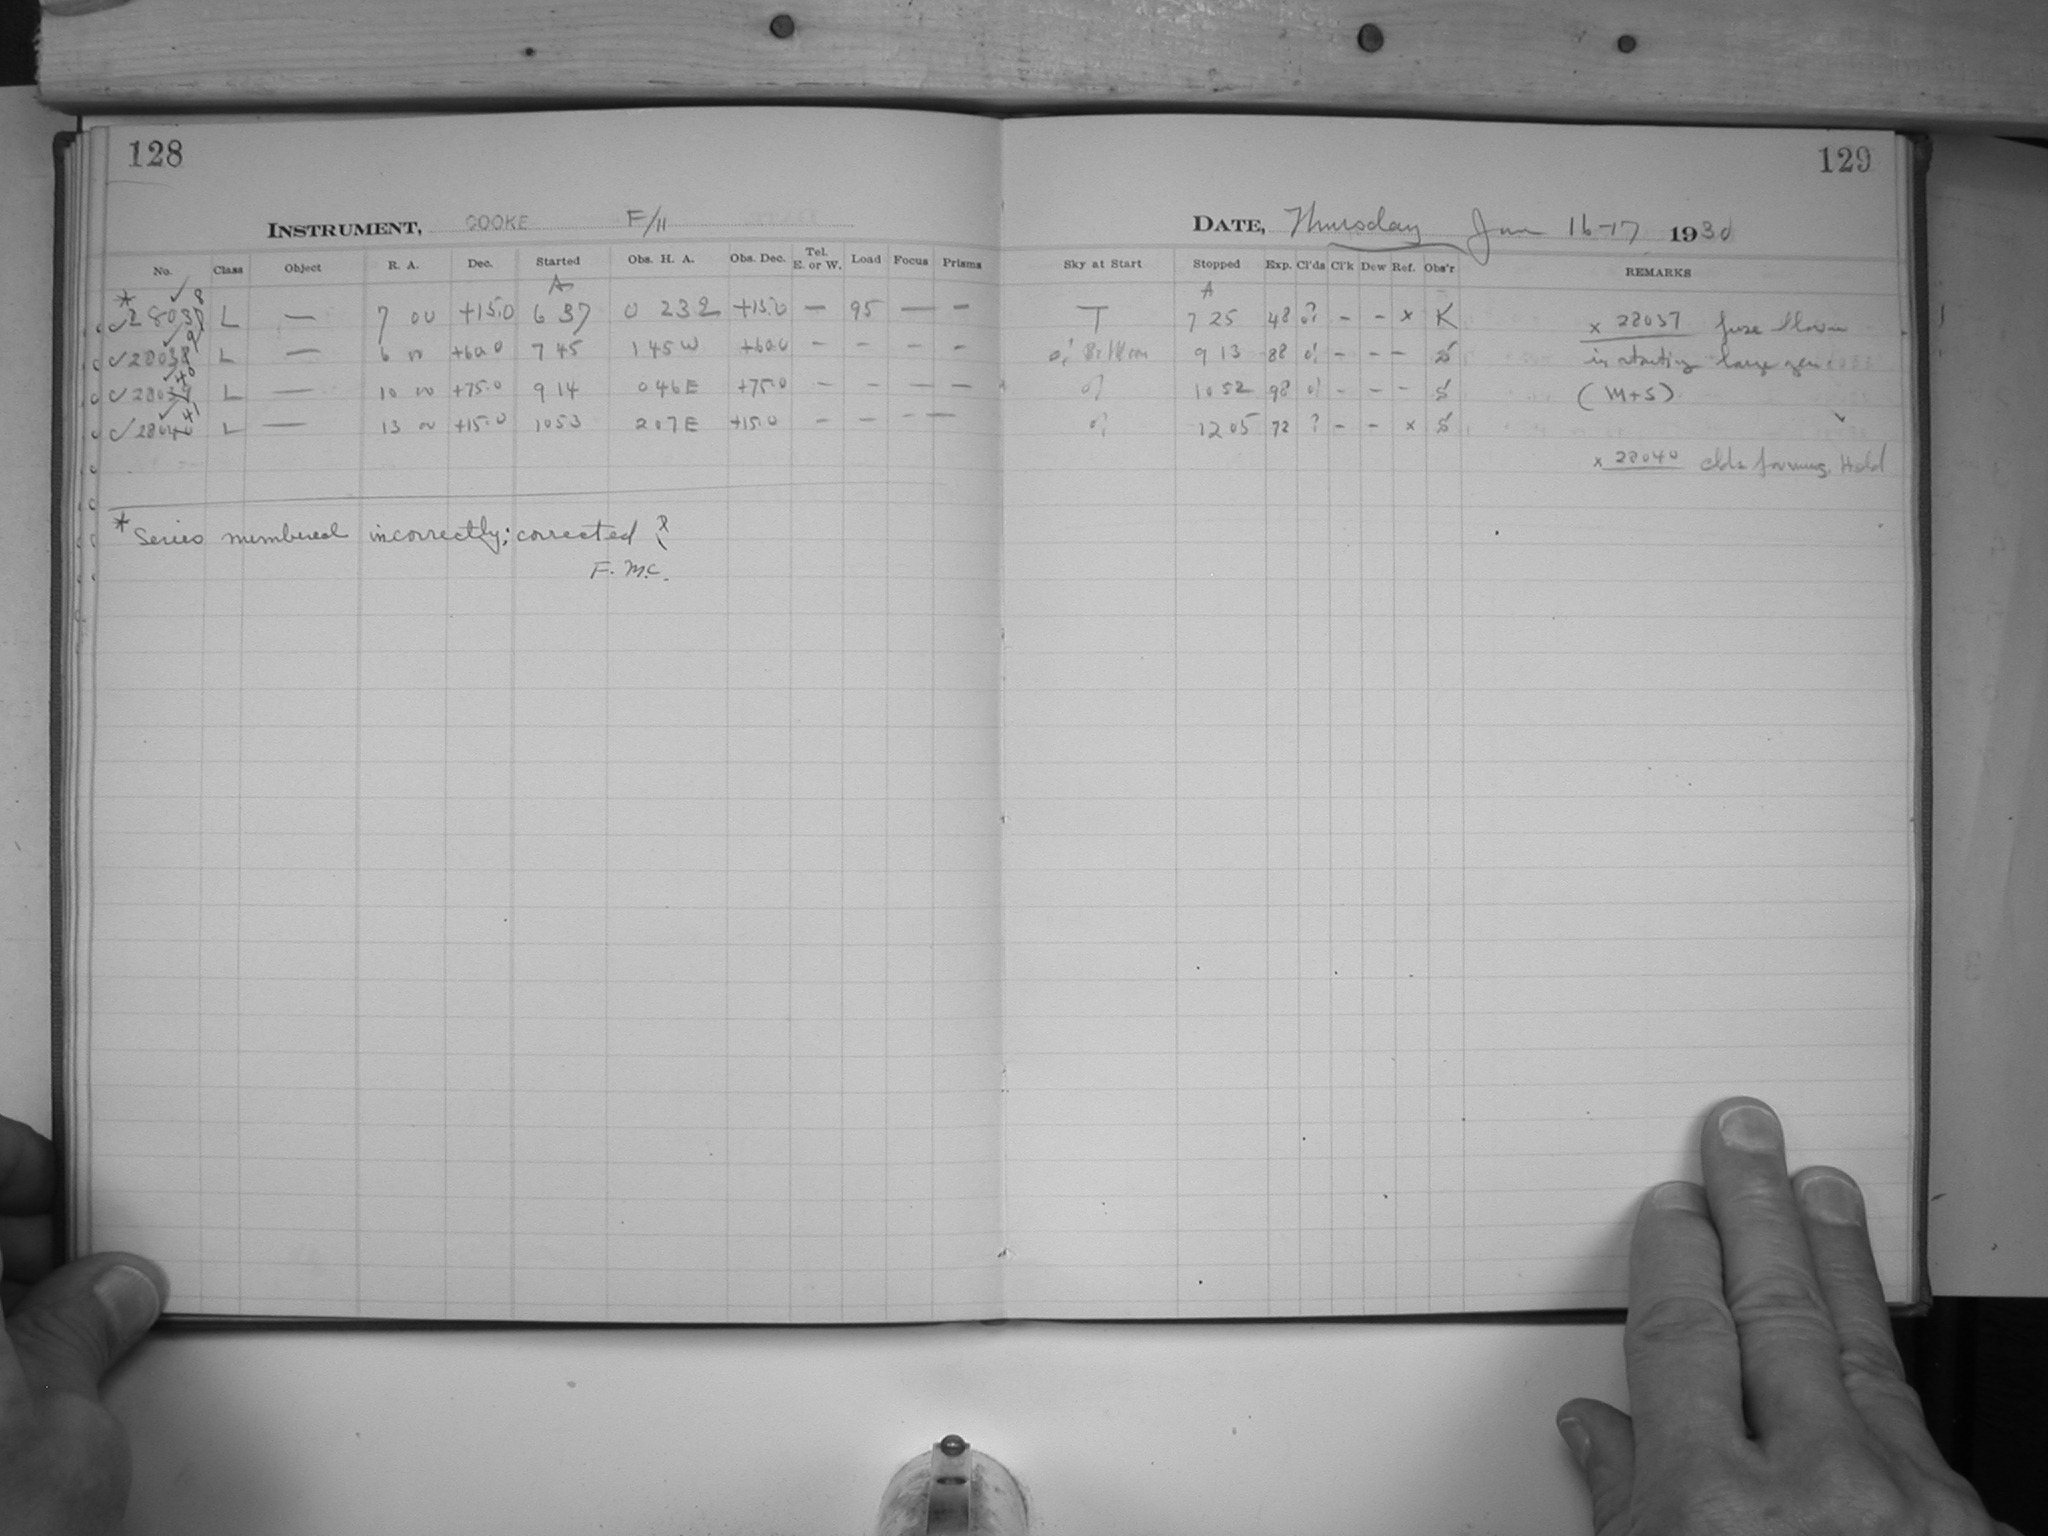 128
129
INSTRUMENT, COOKE F/11
DATE, Thursday Jan 16-17 1930
No. Class Object R. A. Dec. Started Obs. H. A. Obs. Dec. Tel. E. or W. Load Focus Prisms
Sky at Start Stopped Exp. Cl'ds Cl'k Dew Ref. Obs'r REMARKS
A
A
* L — 7 00 +15.0 6 37 0 23 +15.0 — 95 — —
T 7 25 48 - - x K x 28037 fuse blown
L — 6 00 +60.0 7 45 1 45 W +60.0 - - - -
9 13 88 - - - S in starting large gen
L — 10 00 +75.0 9 14 0 46 E +75.0 - - - -
10 52 98 - - - S (M+S)
L — 13 00 +15.0 10 53 2 07 E +15.0 - - - -
12 05 72 ? - - x S
x 28040 clds forming. Held
* Series numbered incorrectly; corrected
F. M.C.